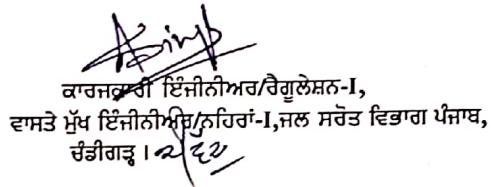 ਕਾਰਜਕਾਰੀ ਇੰਜੀਨੀਅਰ/ਰੈਗੂਲੇਸ਼ਨ-I,
ਵਾਸਤੇ ਮੁੱਖ ਇੰਜੀਨੀਅਰ/ਨਹਿਰਾਂ-I,ਜਲ ਸਰੋਤ ਵਿਭਾਗ ਪੰਜਾਬ,
ਚੰਡੀਗੜ੍ਹ ।